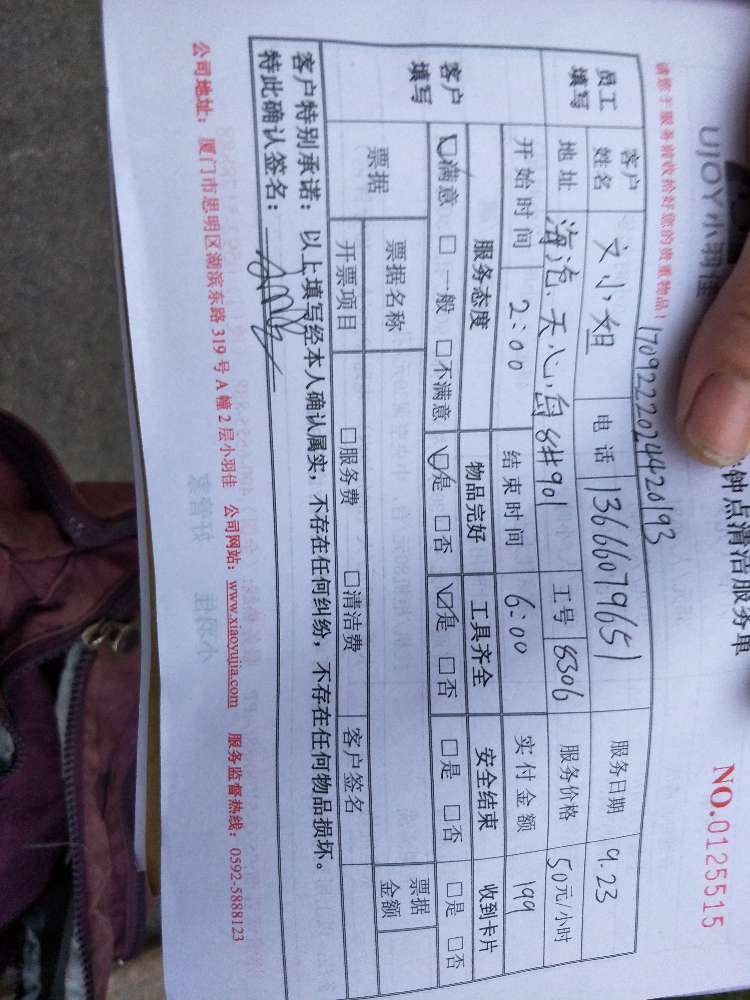 UJOY小羽佳
钟点清洁服务单
NO.0125515
请您于服务前收拾好您的贵重物品！
1709222024420193
员工填写 客户姓名 文小姐 电话 13666079651 服务日期 9.23
地址 海沧.天心岛8#901 工号 8306 服务价格 50元/小时
开始时间 2:00 结束时间 6:00 实付金额 199
客户填写 服务态度 物品完好 工具齐全 安全结束 收到卡片
☑满意 □一般 □不满意 ☑是 □否 ☑是 □否 □是 □否 □是 □否
票据 票据名称 票据金额
开票项目 □服务费 □清洁费 客户签名
客户特别承诺：以上填写经本人确认属实，不存在任何纠纷，不存在任何物品损坏。
特此确认签名：
公司地址：厦门市思明区湖滨东路319号A幢2层小羽佳 公司网站：www.xiaoyujia.com 服务监督热线：0592-5888123